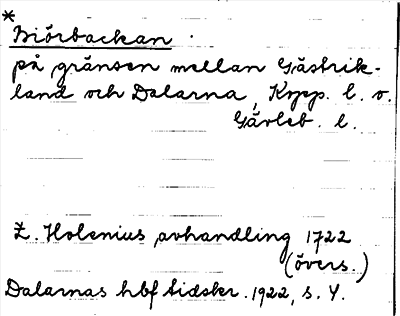 *
Biörbackan
på gränsen mellan Gästrik-
land och Dalarna, Kopp. l. o.
Gävleb. l.
Z. Holenius, avhandling 1722
(övers.)
Dalarnas hbf tidskr. 1922, s. 4.